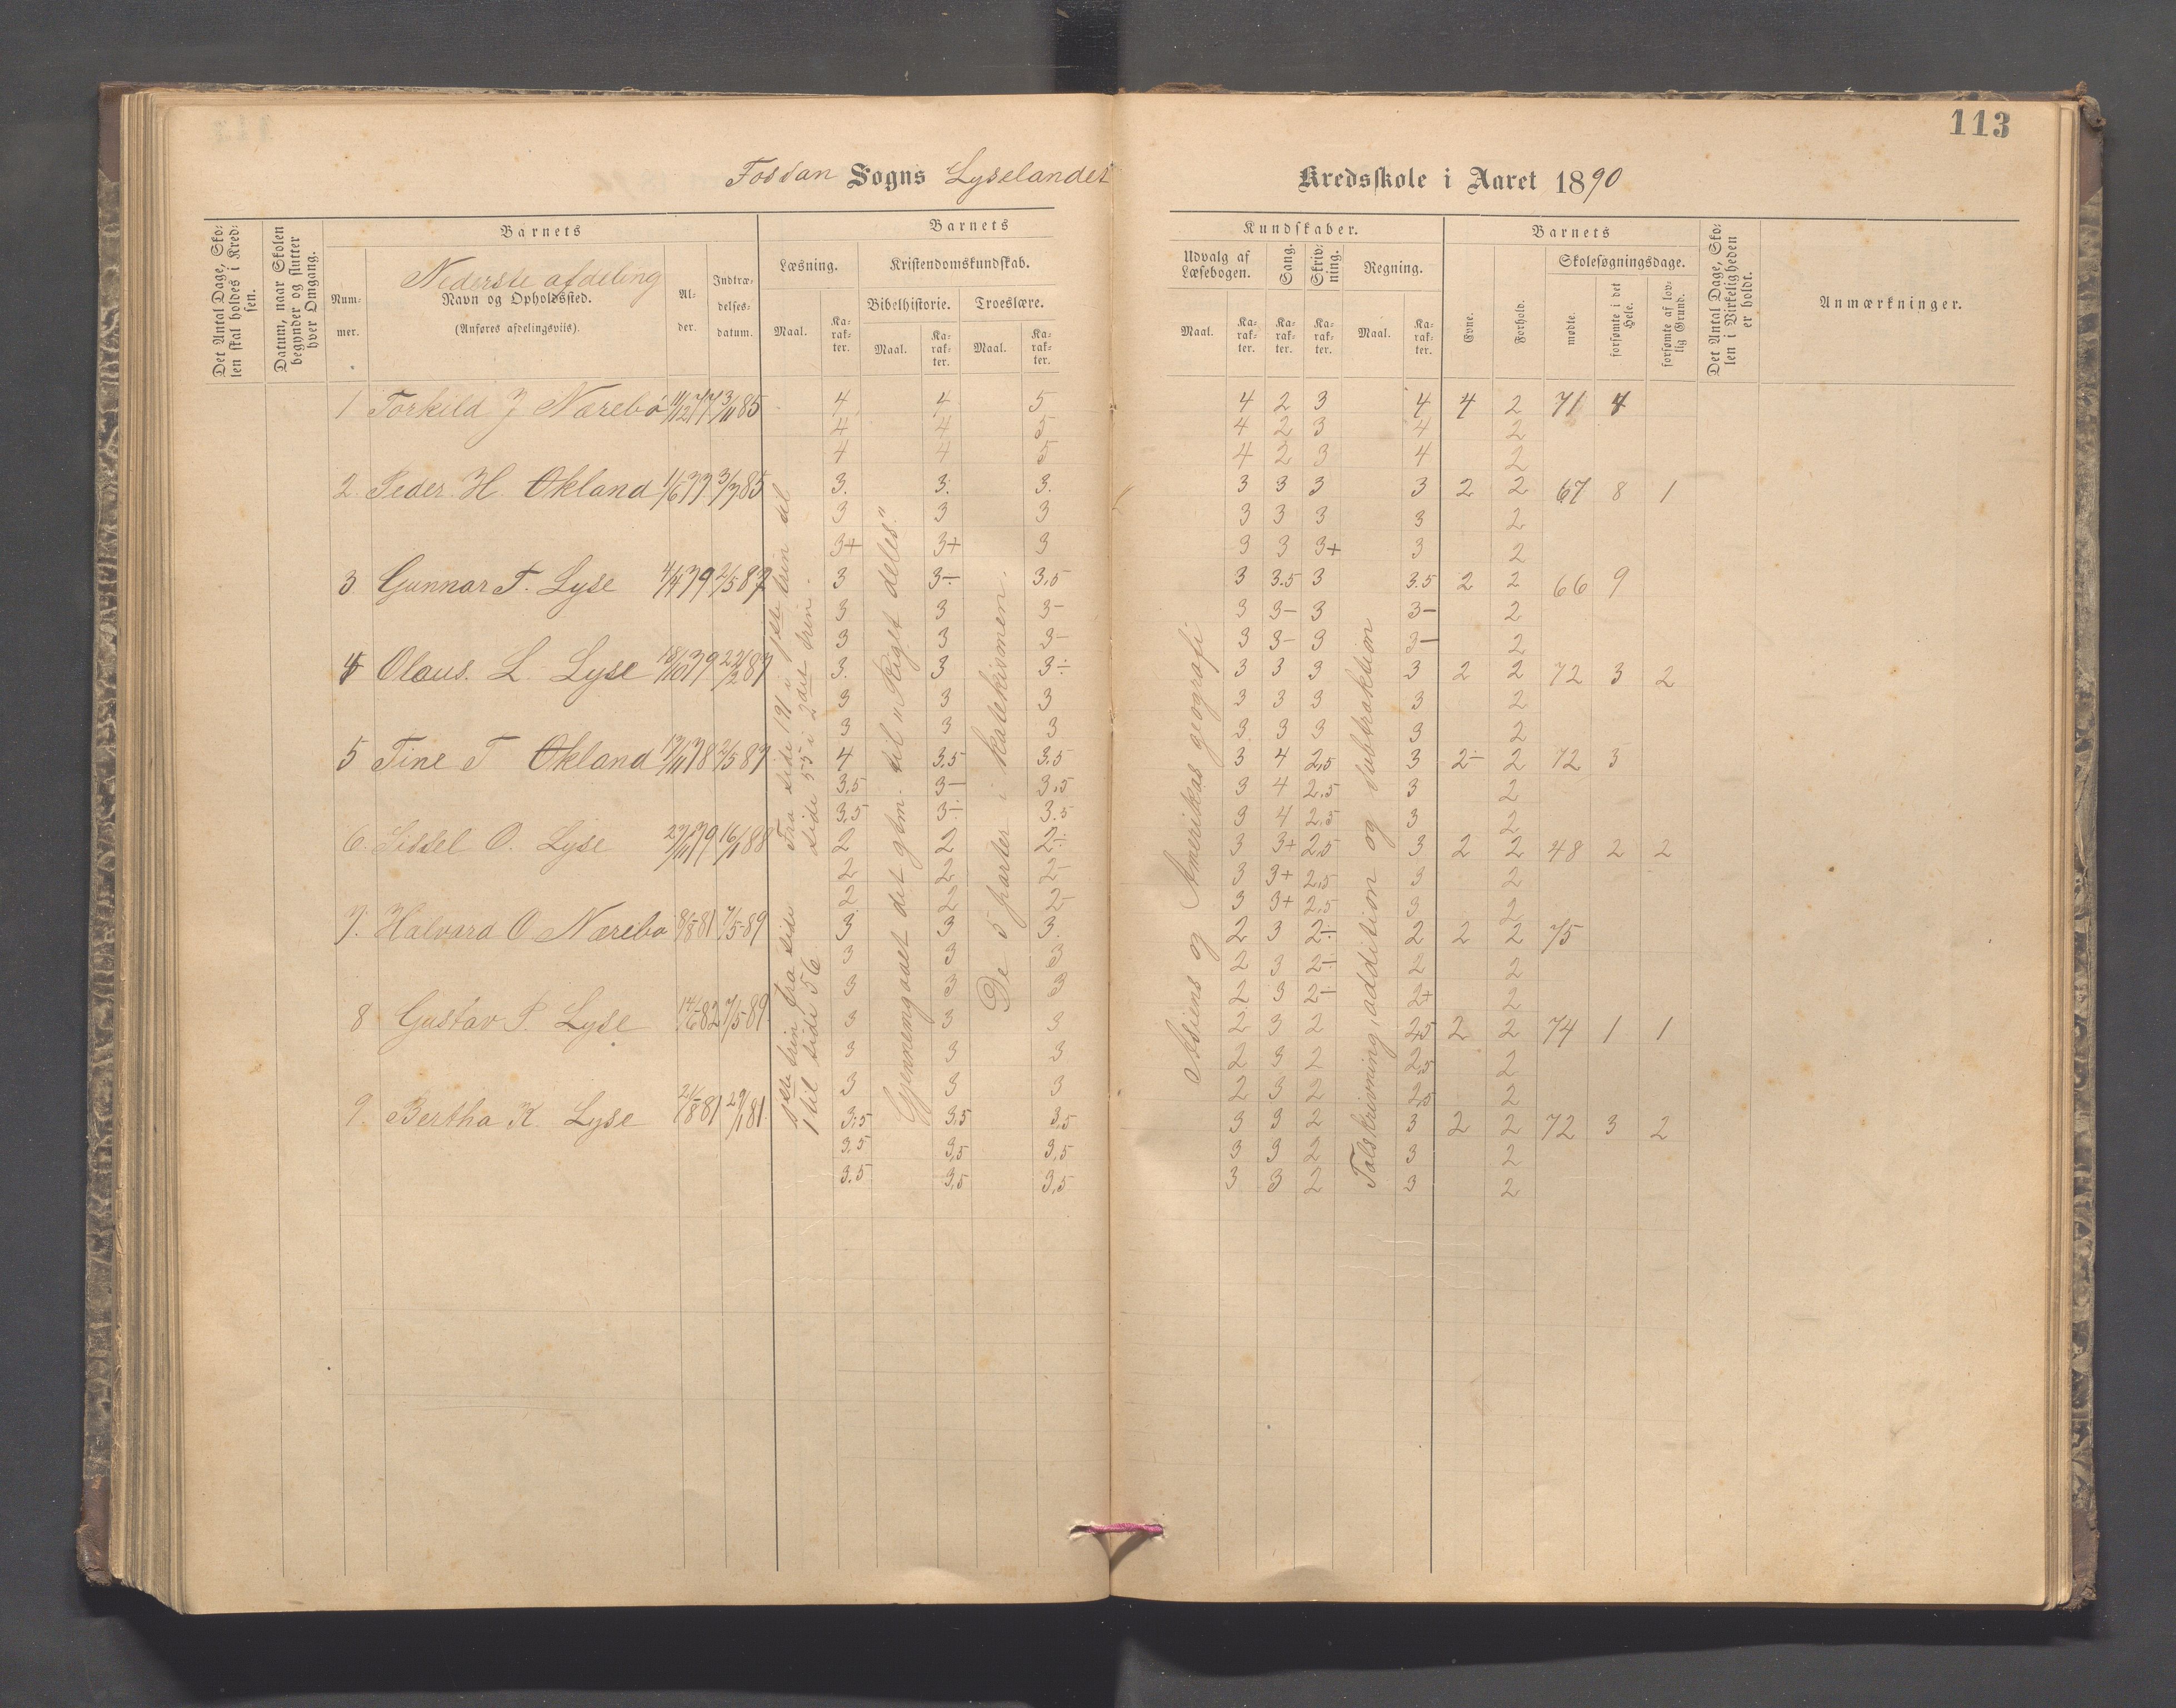 113
Fossan Sogns Lyselandet Kredsskole i Aaret 1890
Det Antal Dage, Skolen skal holdes i Kredsen.
Datum, naar Skolen begynder og slutter hver Omgang.
Barnets
Nummer.
Nederste afdeling
Navn og Opholdssted.
(Anføres afdelingsviis).
Alder.
Indtrædelsesdatum.
Barnets Kundskaber.
Læsning.
Maal. Karakter.
Kristendomskundskab.
Bibelhistorie. Troeslære.
Maal. Karakter. Maal. Karakter.
Udvalg af Læsebogen.
Maal. Karakter.
Sang. Karakter.
Skrivning. Karakter.
Regning.
Maal. Karakter.
Barnets
Evne. Forhold.
Skolesøgningsdage.
mødte. forsømte i det Hele. forsømte af lovlig Grund.
Det Antal Dage, Skolen i Virkeligheden er holdt.
Anmærkninger.
1 Torkild J Nærebø 11/12 77 3/11 85 4 4 5 4 2 3 4 4 2 71 4
4 4 5 4 2 3 4 2
4 4 5 4 2 3 4 2
2. Peder H. Økland 1/6 77 3/7 85 3. 3. 3. 3 3 3 3 2 2 67 8 1
3 3 3 3 3 3 3 2
3+ 3+ 3 3 3 3+ 3 2
3 Gunnar T. Lyse 4/4 79 2/5 87 3 3- 3,5 3 3.5 3 3.5 2 2 66 9
3 3 3- 3 3- 3 3- 2
3 3 3- 3 3- 3 3- 2
4 Olaus. L. Lyse 18/10 79 22/2 87 3. 3 3÷ 3 3 3 3 2 2 72 3 2
3 3 3 3 3 3 3 2
3 3 3 3 3 3 3 2
5 Tine T Økland 19/11 78 2/5 87 4 3,5 3.5 3 4 2,5 3 2- 2 72 3
3,5 3- 3,5 3 4 2,5 3 2
3,5 3÷ 3.5 3 4 2,5 3 2
6. Sissel O. Lyse 27/11 79 16/1 88 2 2 2÷ 3 3+ 2,5 3 2 2 48 2 2
2 2 2- 3 3+ 2,5 3 2
2 2 2- 3 3+ 2,5 3 2
7. Halvard O Nærebø 8/8-81 7/5-89 3 3 3. 2 3 2÷ 2 2 2 75
3 3 3 2 3 2÷ 2 2
3 3 3 2 3 2- 2+ 2
8 Gustav P. Lyse 14/6-82 7/5-89 3 3 3 2 3 2 2,5 2 2 74 1 1
3 3 3 2 3 2 2,5 2
3 3 3 2 3 2 2,5 2
9. Bertha K. Lyse 24/8-81 29/1 81. 3,5 3,5 3,5 3 3 2 3 2 2 72 3 2
3,5 3,5 3,5 3 3 2 3 2
3.5 3,5 3,5 3 3 2 3 2
1ste trin fra side 1 til side 56
Fra side 191 i 1ste trin til side 55 i 2det trin.
Gjennemgaaet det glm. til „Riget deles."
De 5 parter i katekismen.
Asiens og Amerikas geografi
Talskrivning, addition og subtraktion